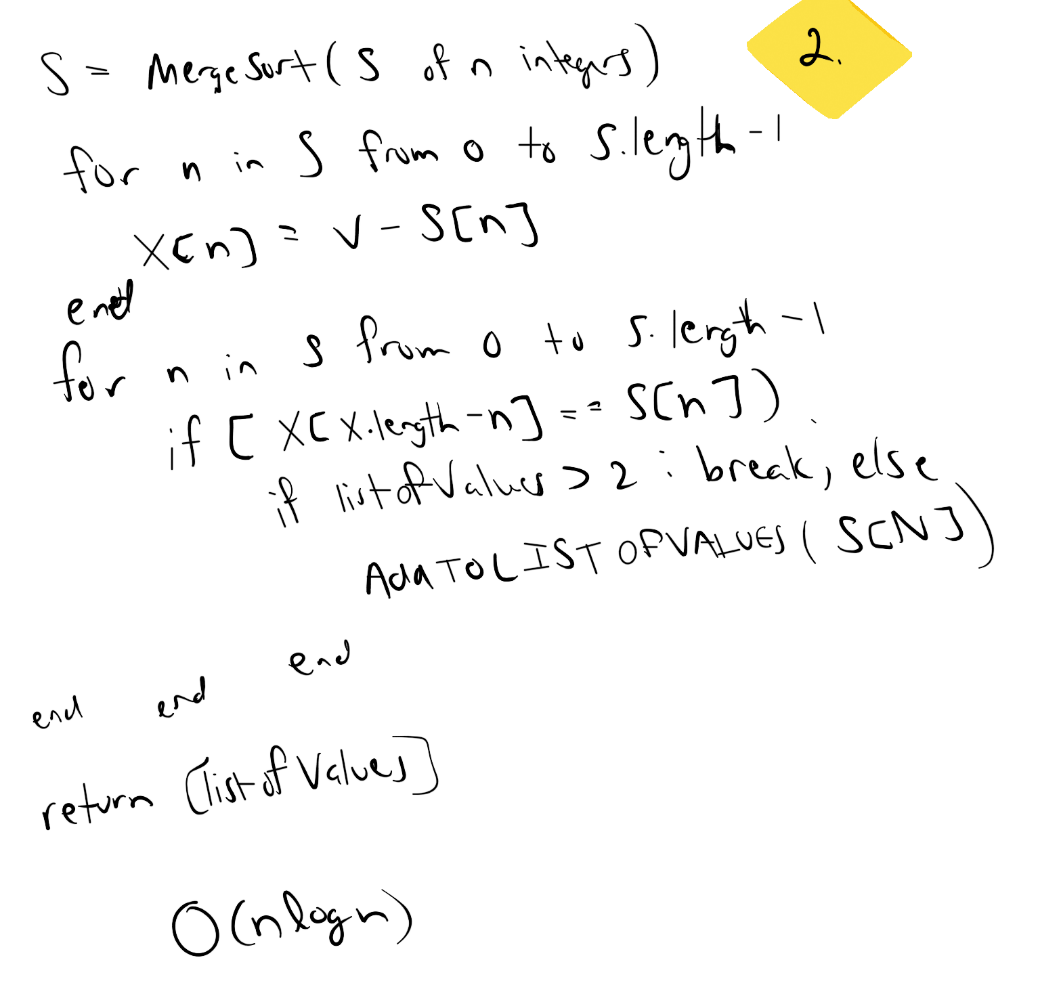 2.
S = MergeSort(S of n integers)
for n in S from 0 to S.length-1
X[n] = V - S[n]
end
for n in S from 0 to S.length-1
if [ X[X.length-n] == S[n])
if listofValues > 2 : break, else
AddTOLISTOFVALUES(S[N])
end
end end
return [listofValues]
O(nlogn)